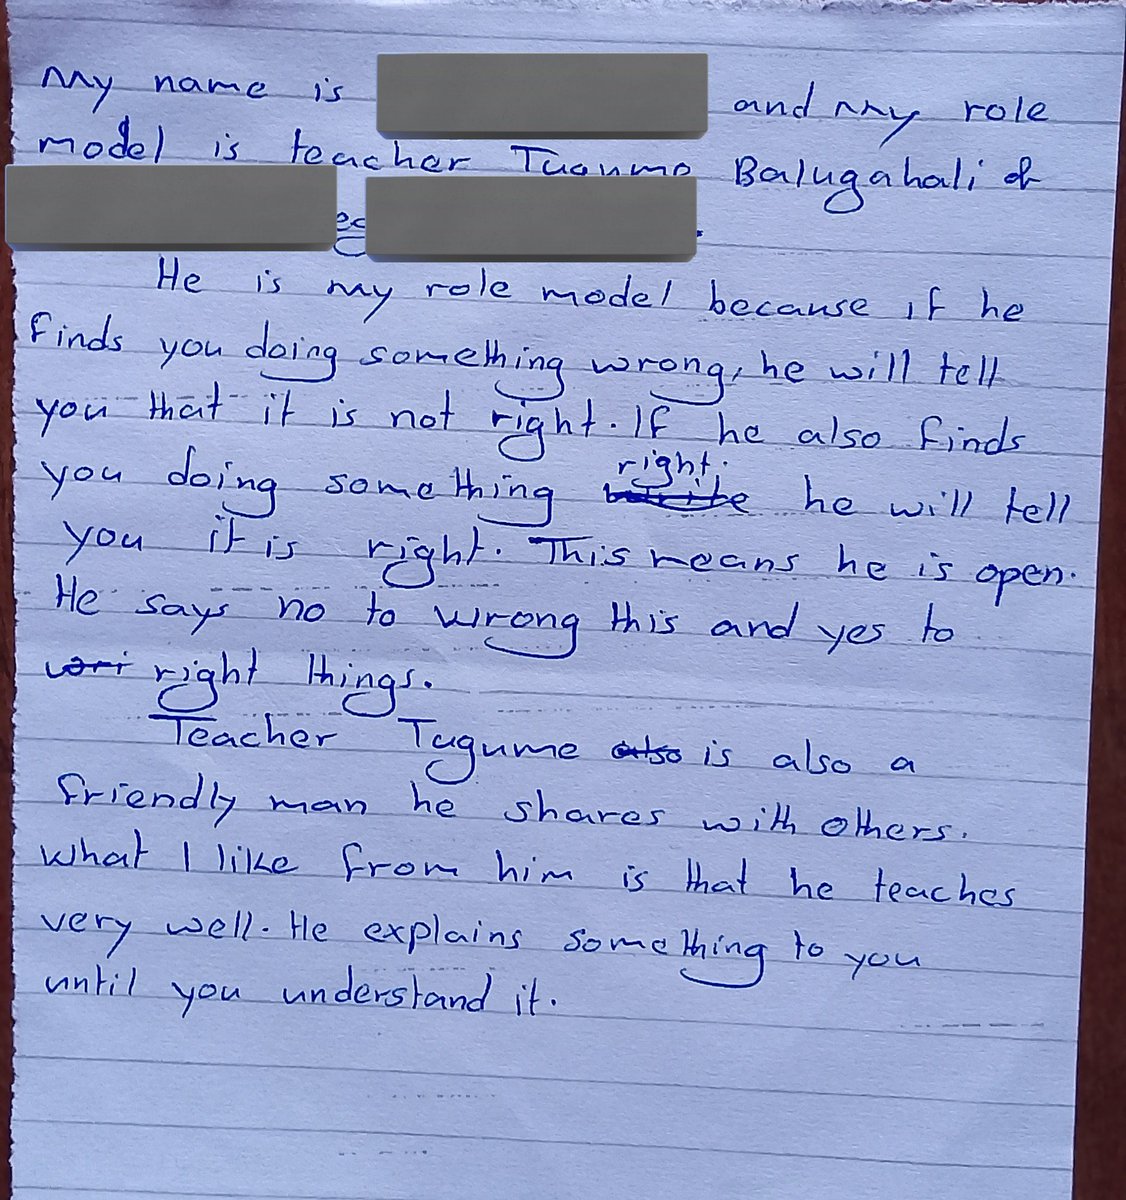 My name is and my role
model is teacher Tugume Balugahali of
He is my role model because if he
finds you doing something wrong, he will tell
you that it is not right. If he also finds
you doing something right. he will tell
you it is right. This means he is open.
He says no to wrong this and yes to
right things.
Teacher Tugume also is also a
friendly man he shares with others.
What I like from him is that he teaches
very well. He explains something to you
until you understand it.